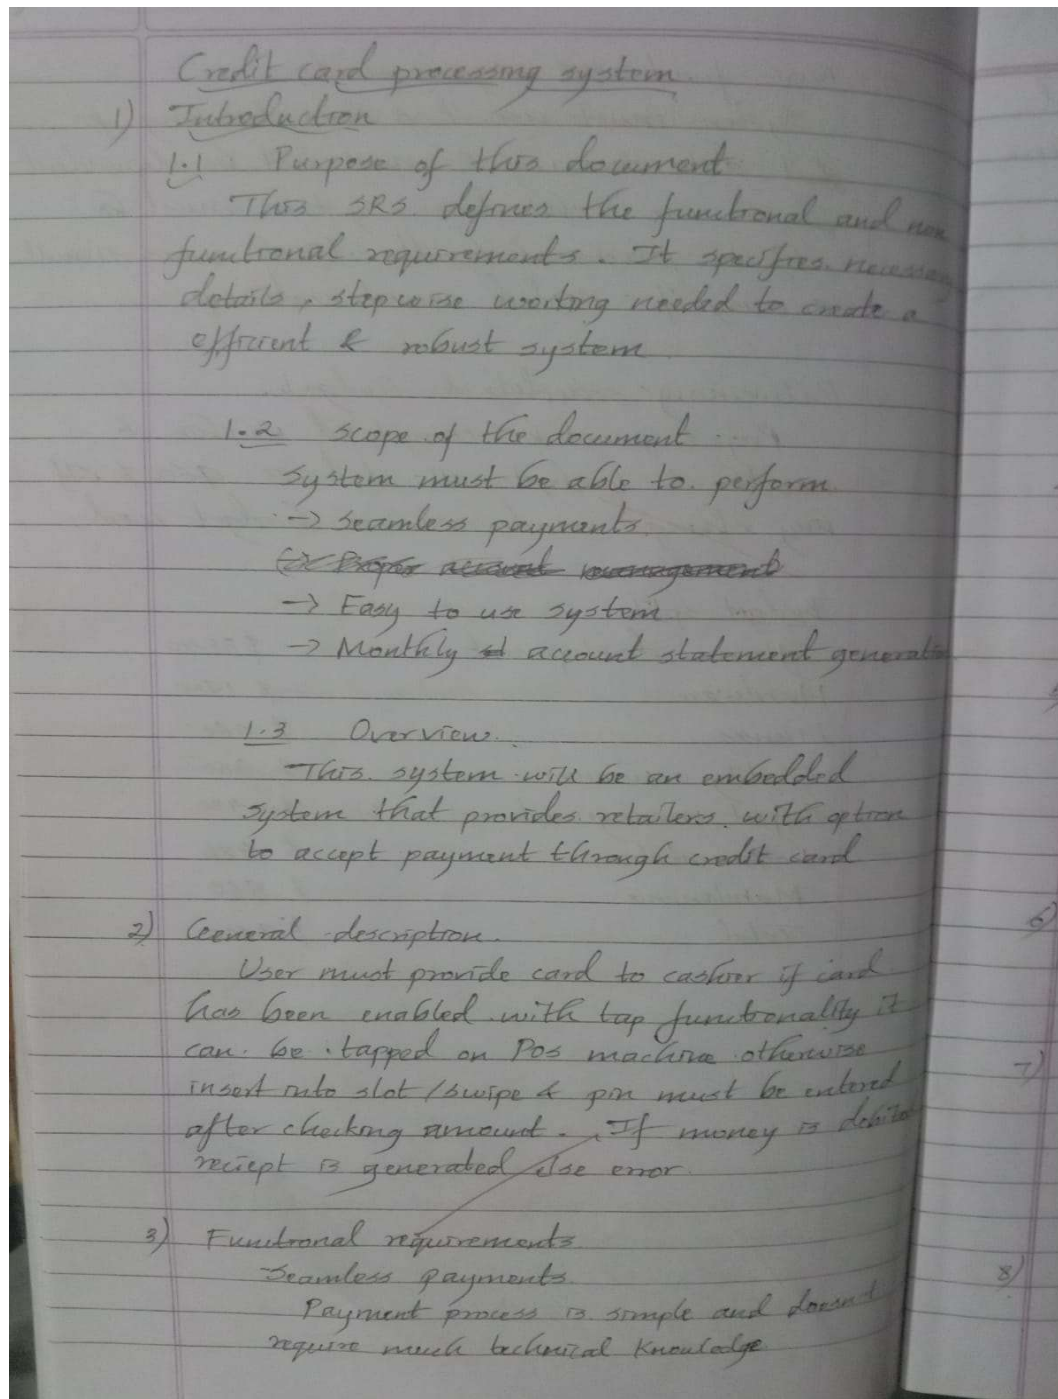 Credit card processing system
1) Introduction
1.1 Purpose of this document
This SRS defines the functional and non
functional requirements. It specifies necessary
details, stepwise working needed to create a
efficient & robust system
1.2 scope of the document
System must be able to perform
-> seamless payments
-> Proper account management
-> Easy to use system
-> Monthly account statement generation
1.3 Overview.
This system will be an embedded
system that provides retailers with option
to accept payment through credit card
2) General description.
User must provide card to cashier if card
has been enabled with tap functionality it
can be tapped on Pos machine otherwise
insert into slot / swipe & pin must be entered
after checking amount. If money is debited
reciept is generated else error
3) Functional requirements
Seamless payments
Payment process is simple and doesn't
require much technical knowledge
6)
7)
8)